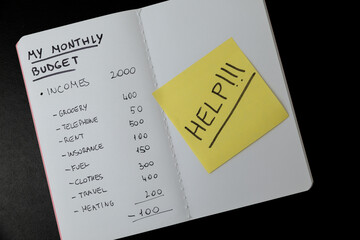 MY MONTHLY
BUDGET
• INCOMES 2000
- GROCERY 400
- TELEPHONE 50
- RENT 500
- INSURANCE 100
- FUEL 150
- CLOTHES 300
- TRAVEL 400
- HEATING 200
-100
HELP!!!